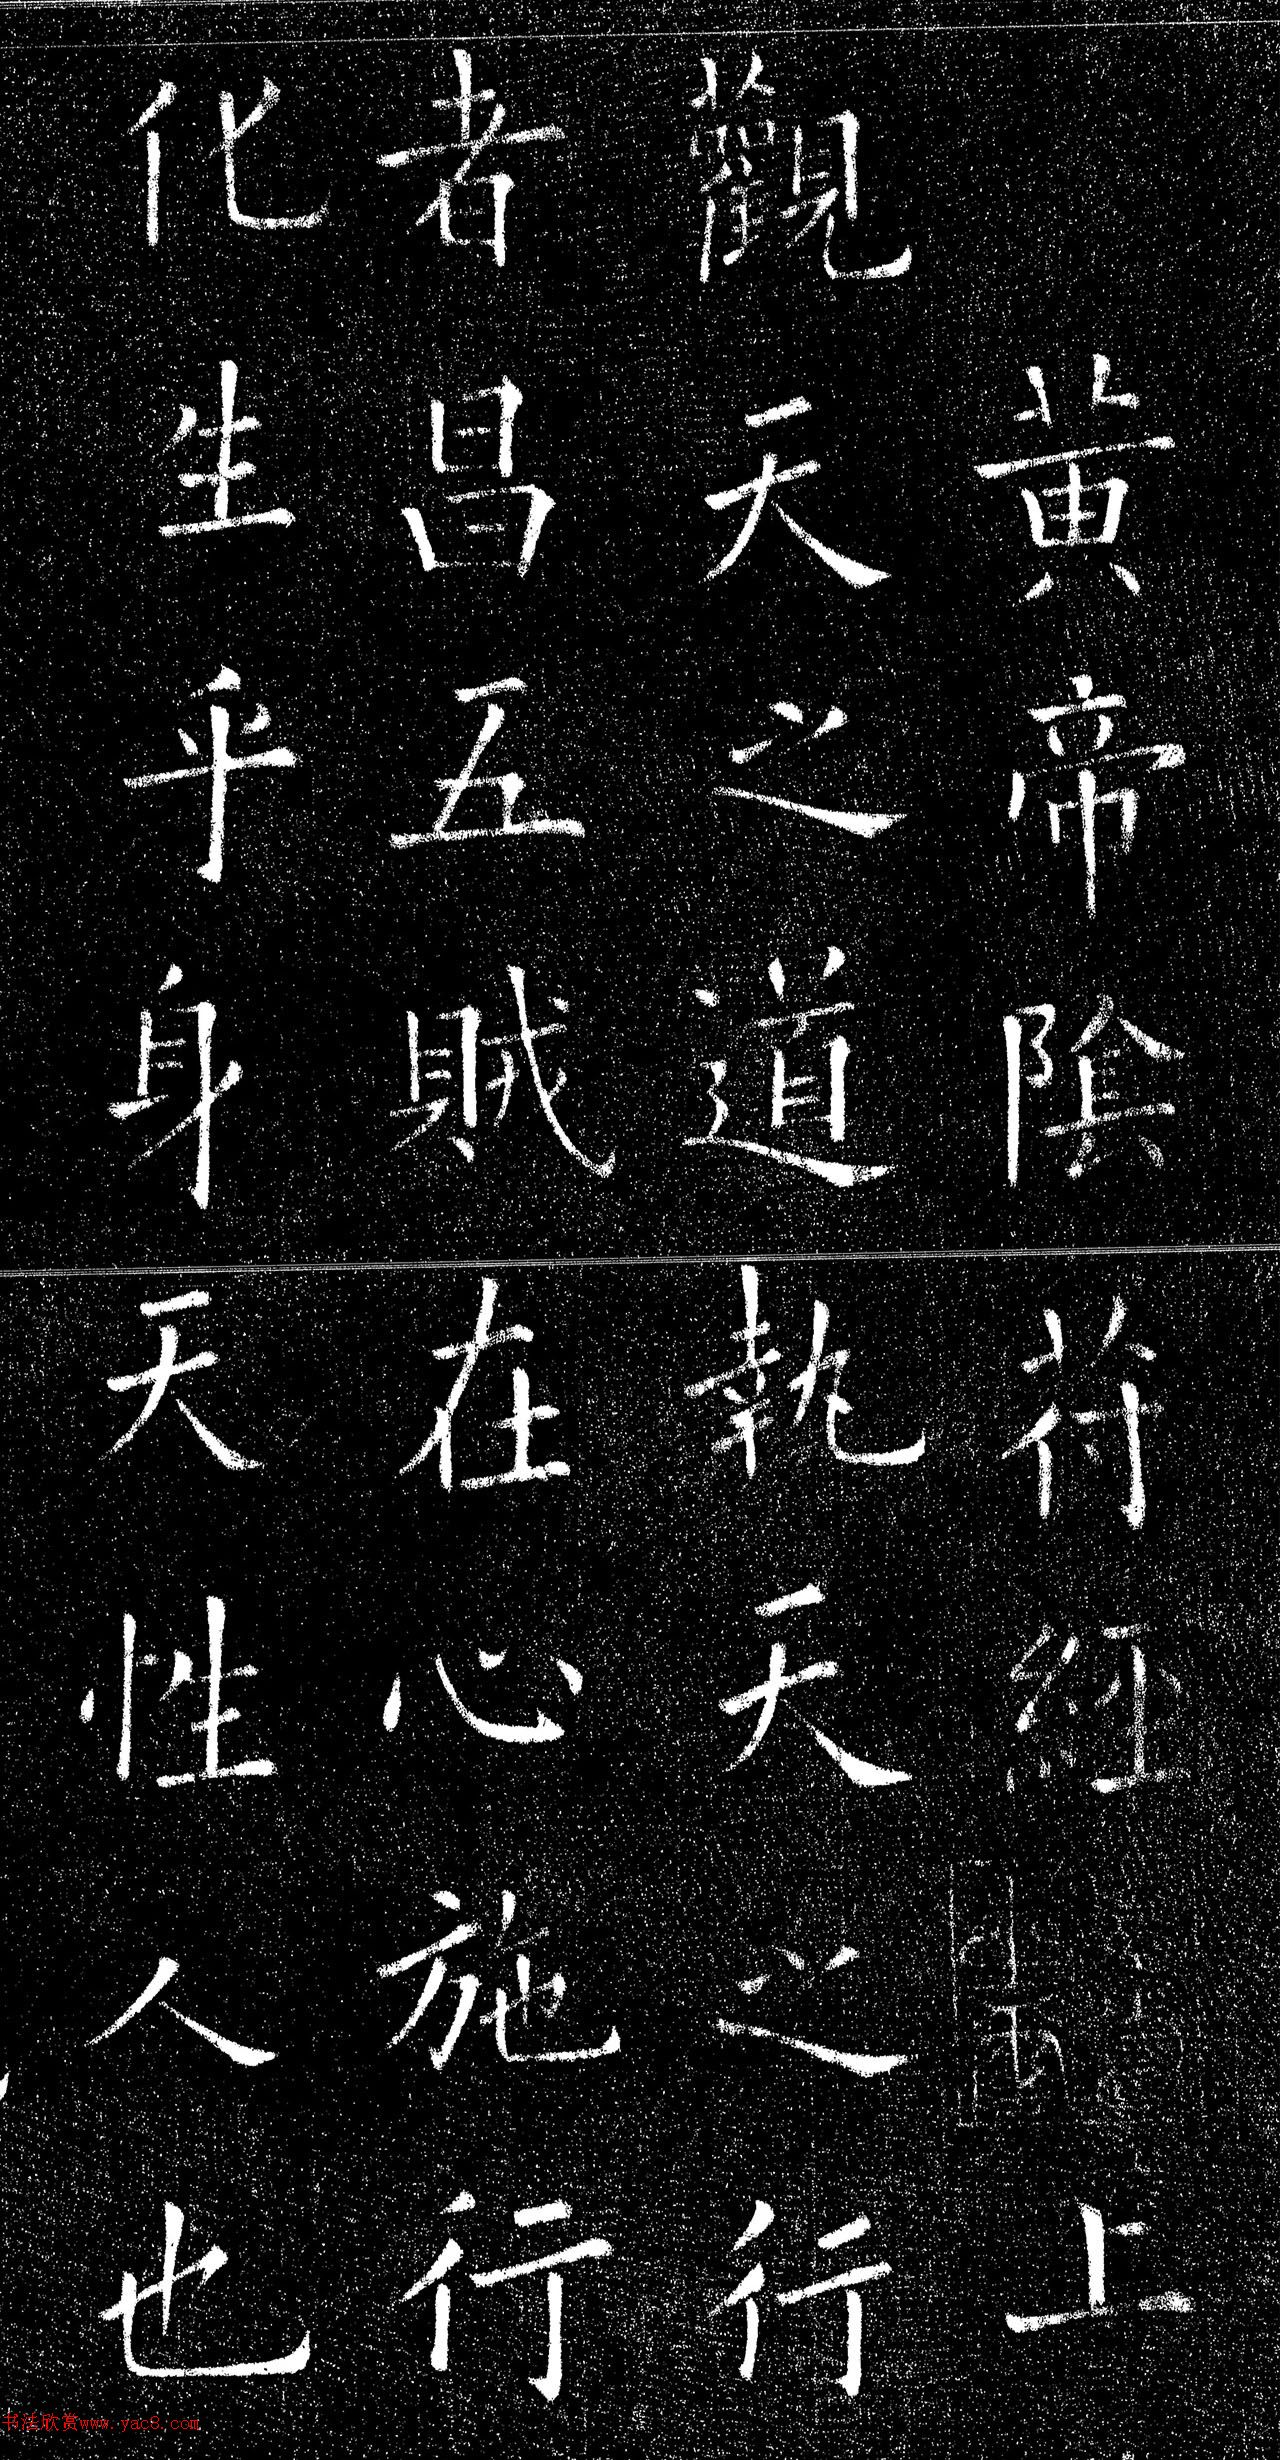 黃帝陰符經上
觀天之道執天之行
者昌五賊在心施行
化生乎身天性人也
书法欣赏www.yac8.com